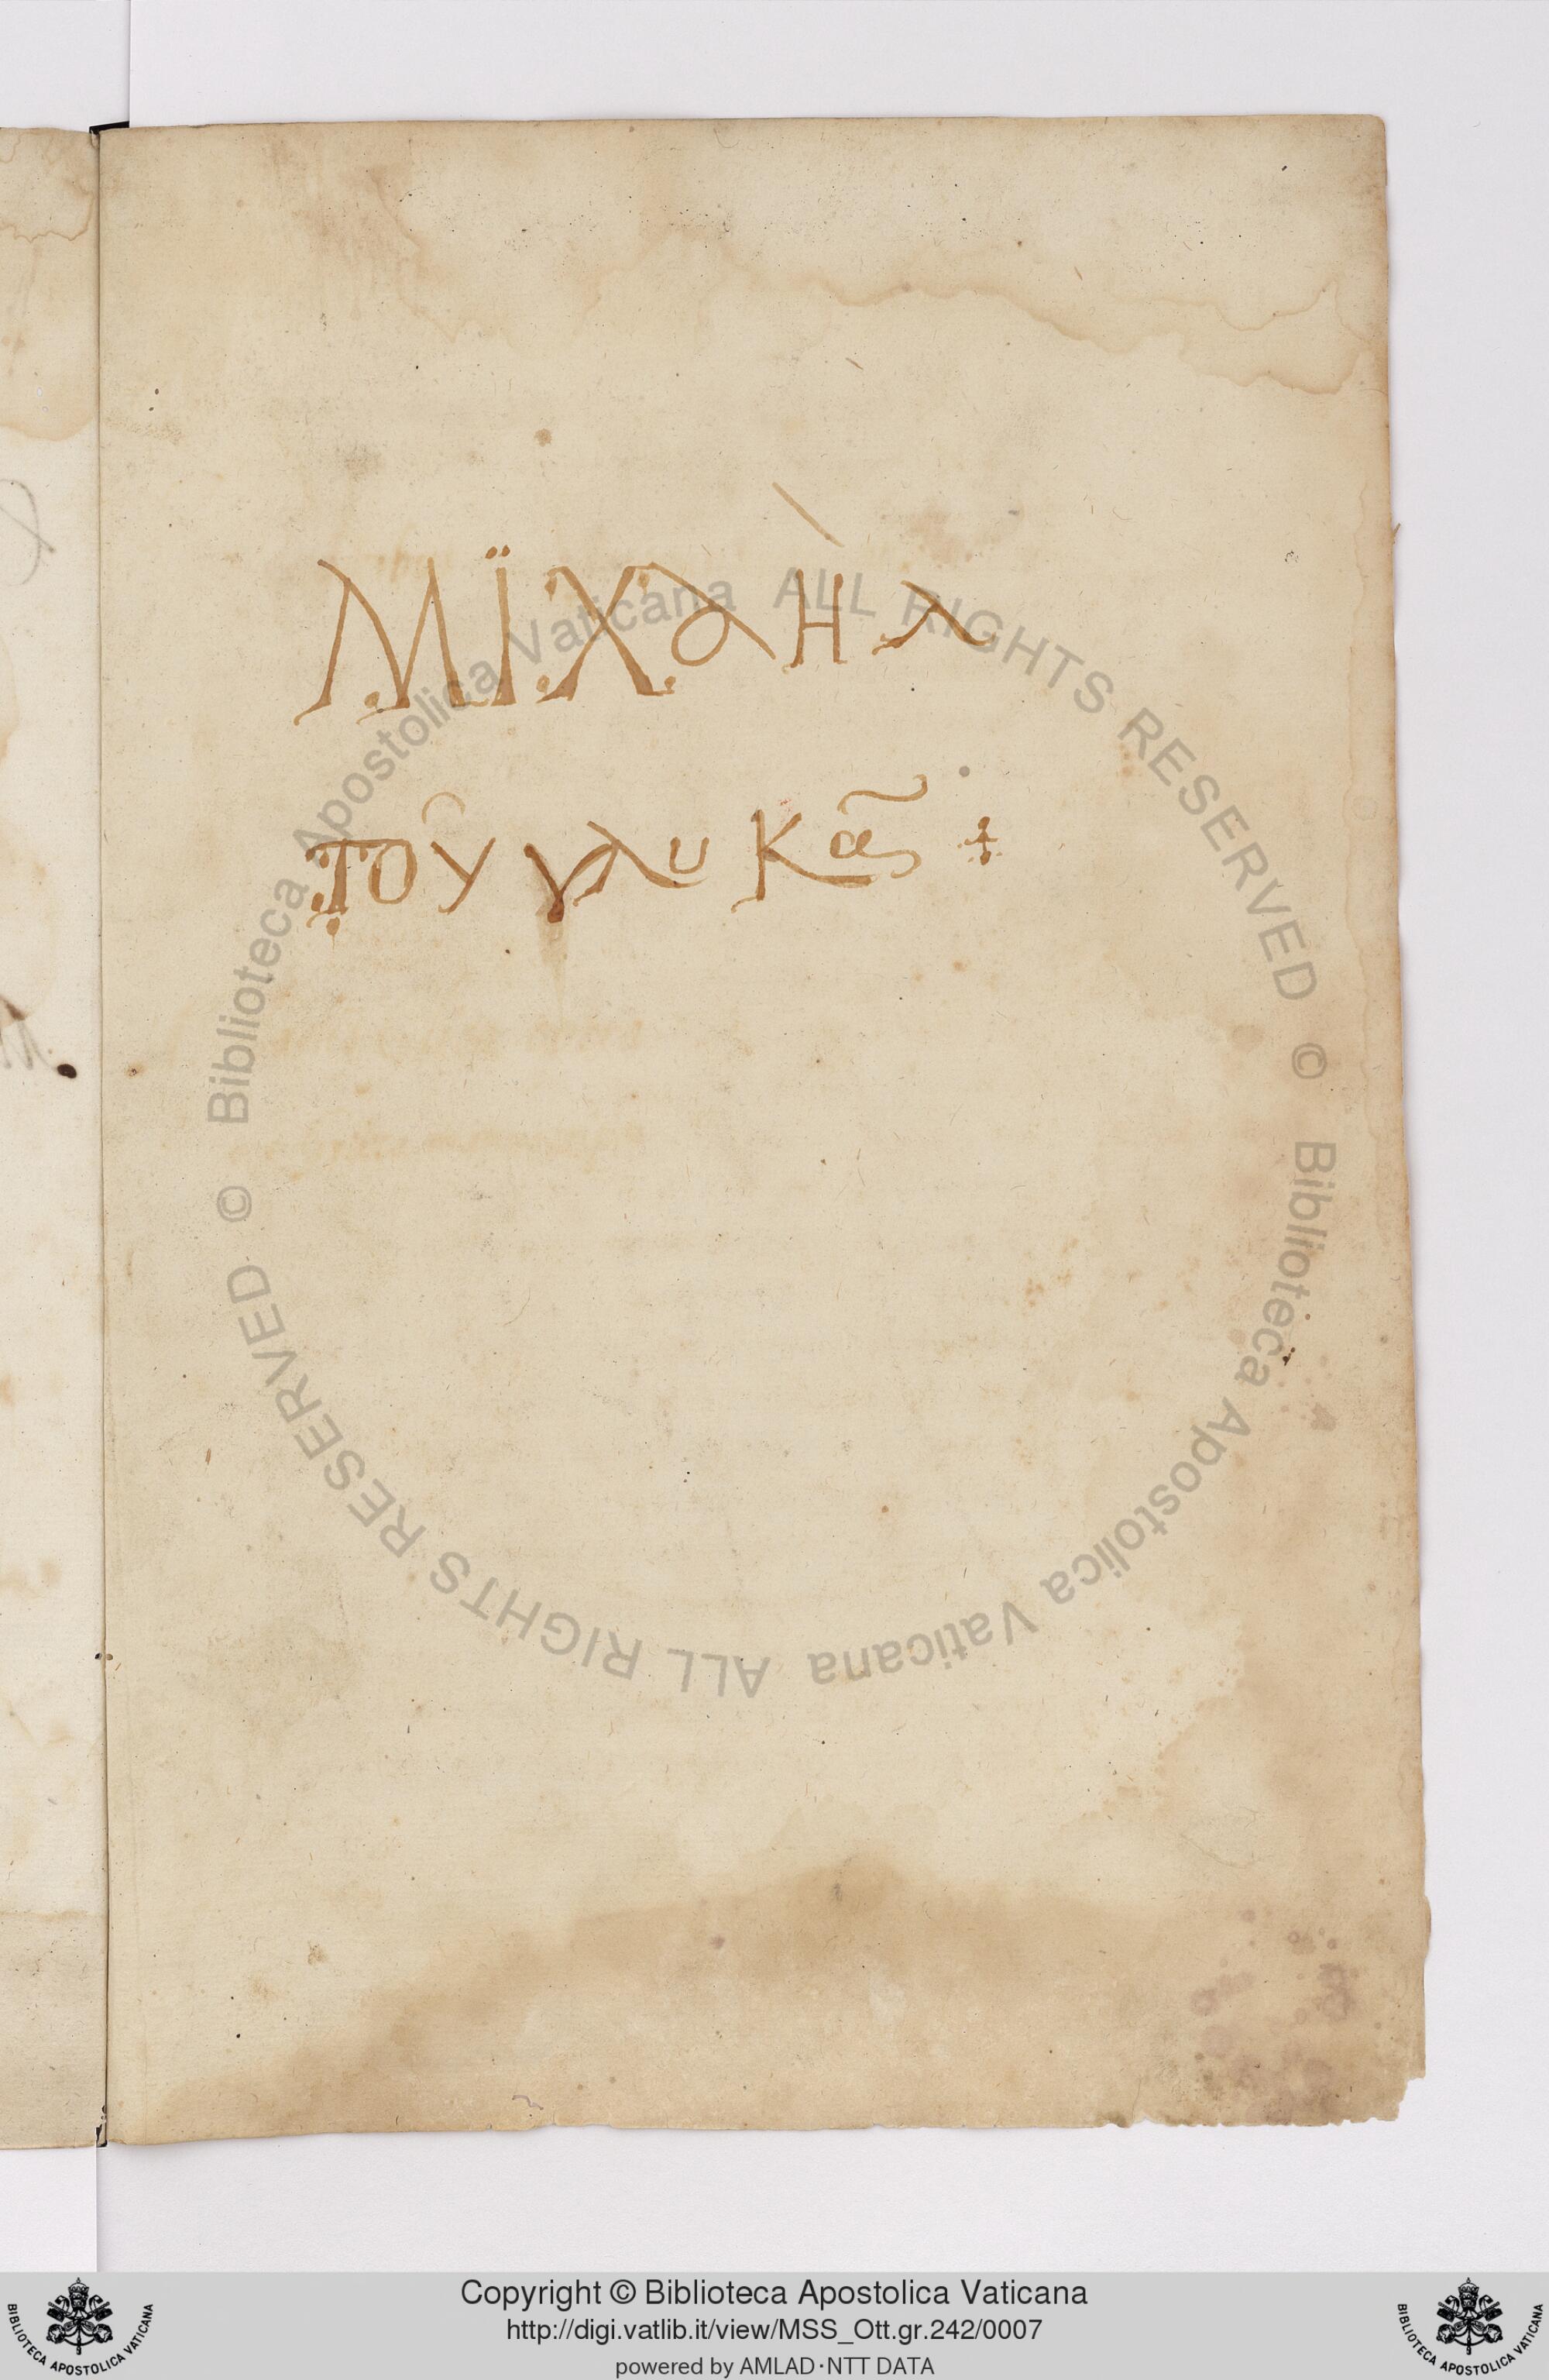 Μϊχαὴλ
τοῦ γλυκᾶς ⁜
© Biblioteca Apostolica Vaticana ALL RIGHTS RESERVED © Biblioteca Apostolica Vaticana ALL RIGHTS RESERVED
Copyright © Biblioteca Apostolica Vaticana
http://digi.vatlib.it/view/MSS_Ott.gr.242/0007
powered by AMLAD·NTT DATA
BIBLIOTECA APOSTOLICA VATICANA
BIBLIOTECA APOSTOLICA VATICANA